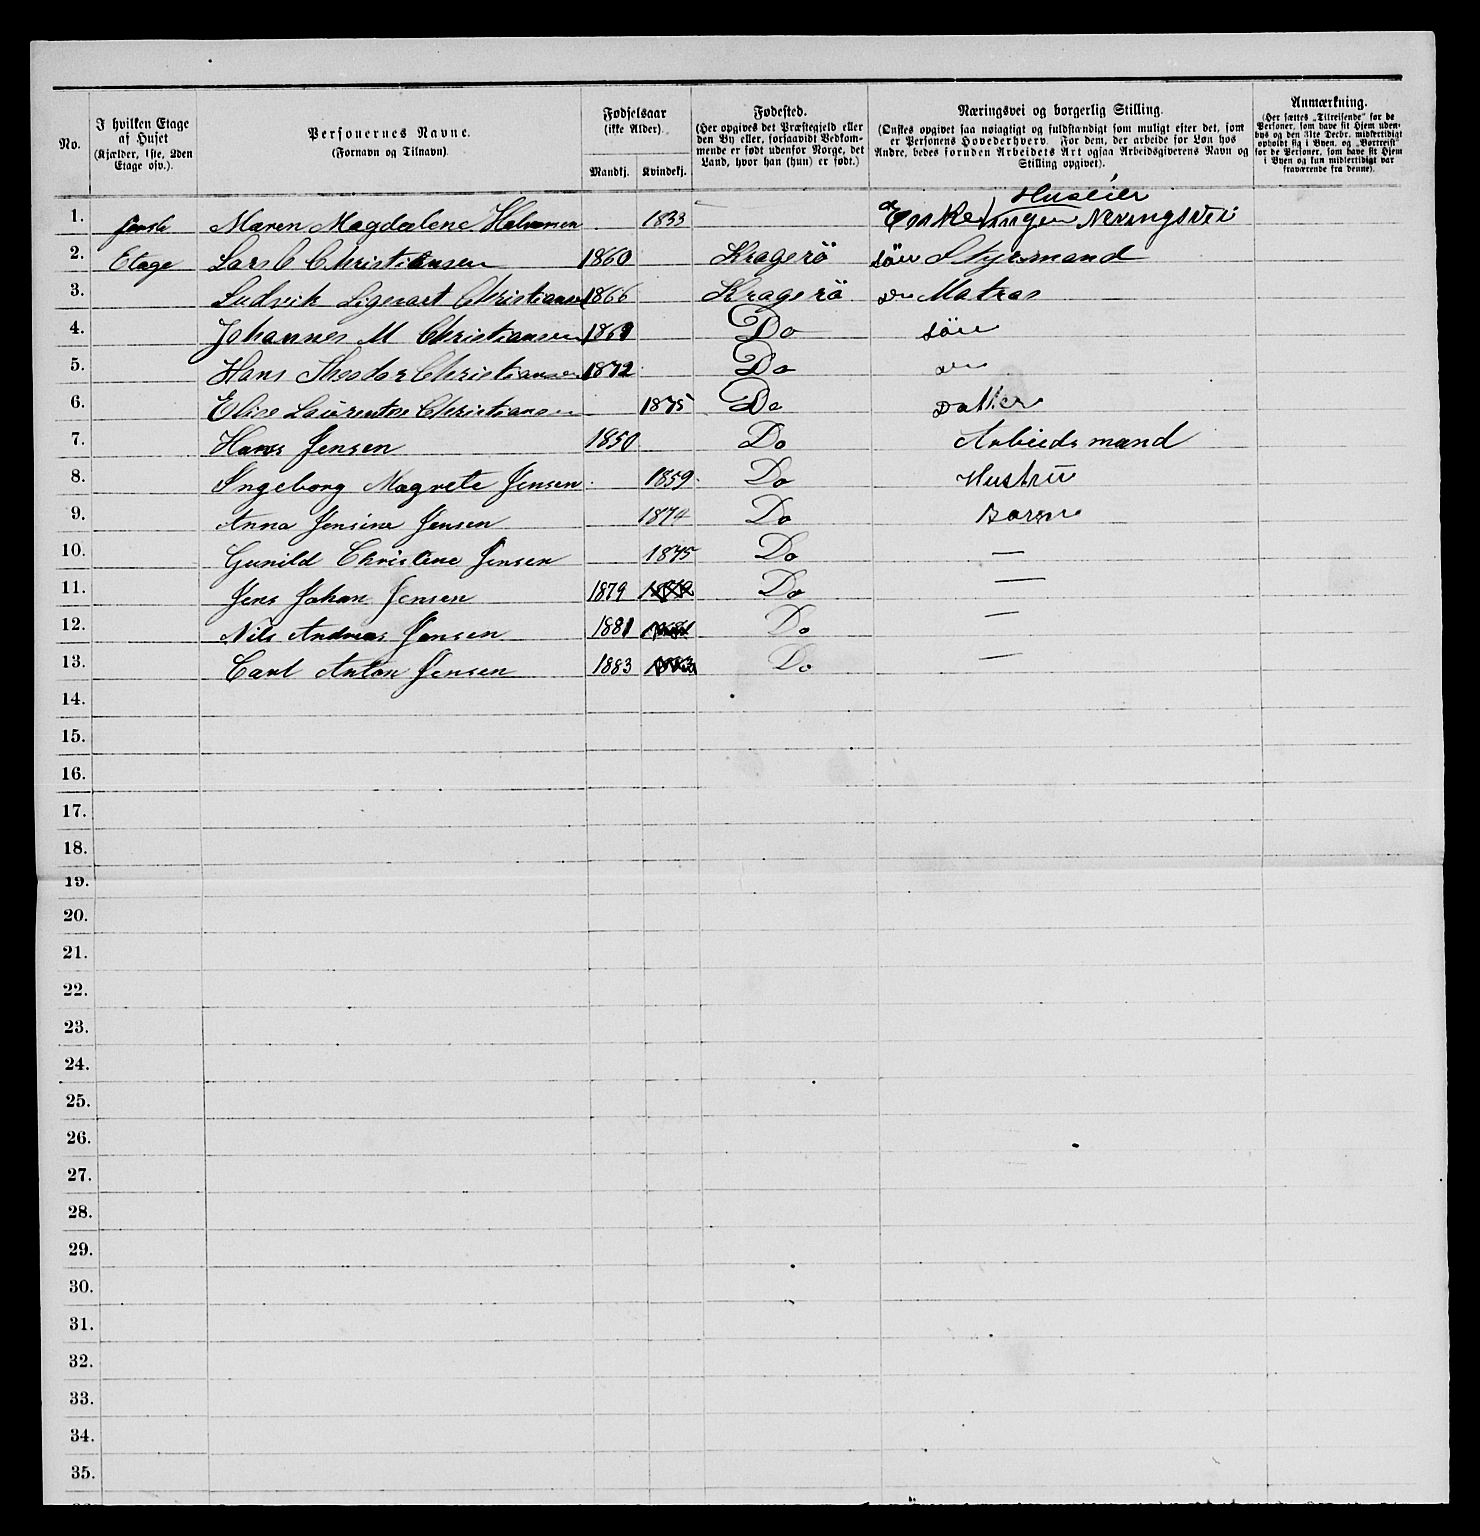 No.
I hvilken Etage
af Huset
(Kjælder, 1ste, 2den
Etage osv.).
Personernes Navne.
(Fornavn og Tilnavn).
Fødselsaar
(ikke Alder).
Mandkj. Kvindekj.
Fødested.
(Her opgives det Præstegjeld eller
den By eller, forsaavidt Vedkom-
mende er født udenfor Norge, det
Land, hvor han (hun) er født.)
Næringsvei og borgerlig Stilling.
(Ønskes opgivet saa nøiagtigt og fuldstændigt som muligt efter det, som
er Personens Hovederhverv. For dem, der arbeide for Løn hos
Andre, bedes foruden Arbeidets Art ogsaa Arbeidsgiverens Navn og
Stilling opgivet).
Anmærkning.
(Her sættes „Tilreisende" for de
Personer, som have sit Hjem uden-
bys og den 31te Decbr. midlertidigt
opholdt sig i Byen, og „Bortreist"
for de Personer, som have sit Hjem
i Byen og kun midlertidigt var
fraværende fra denne).
Huseier
1. første Maren Magdalene Halvorsen 1833 Enke Ingen Næringsvei
2. Etage Lars C Christiansen 1860 Kragerö sön Styrmand
3. Ludvik Christiansen 1866 Kragerö Matros
4. Johannes M Christiansen 1869 Do sön
5. Hans Theodor Christiansen 1872 Do
6. Elise Laurentse Christiansen 1875 Do Datter
7. Hans Jensen 1850 Do Arbeidsmand
8. Ingeborg Magrete Jensen 1859 Do Hustru
9. Anna Jensine Jensen 1874 Do Barn
10. Gunild Christine Jensen 1875 Do —
11. Jens Johan Jensen 1879 Do —
12. Nils Andreas Jensen 1881 Do —
13. Carl Anton Jensen 1883 Do —
14.
15.
16.
17.
18.
19.
20.
21.
22.
23.
24.
25.
26.
27.
28.
29.
30.
31.
32.
33.
34.
35.